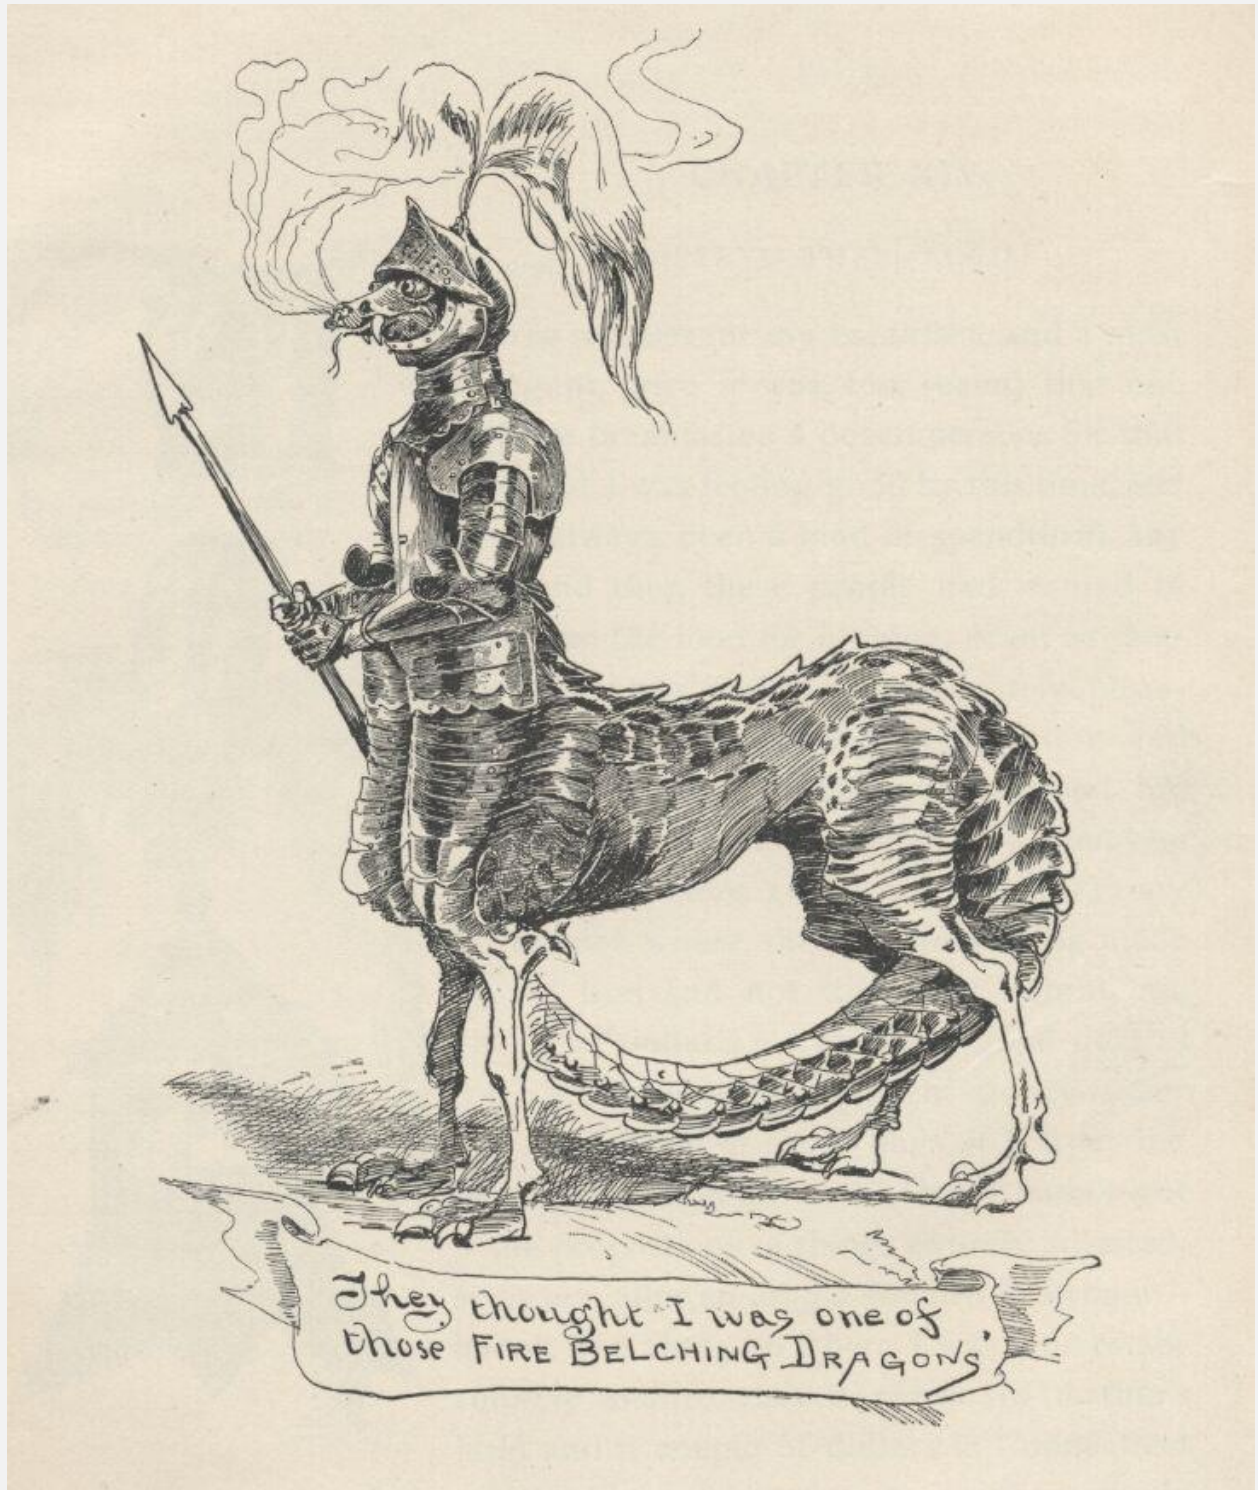 They thought I was one of
those FIRE BELCHING DRAGONS'